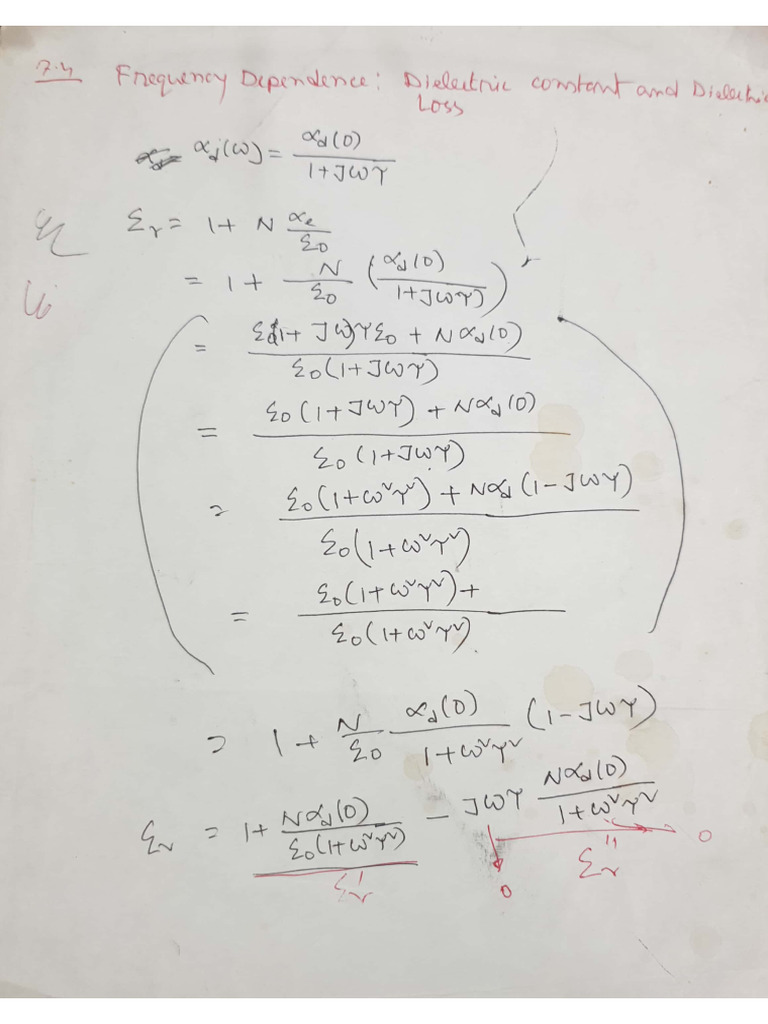 7.4 Frequency Dependence: Dielectric constant and Dielectric
Loss
α_d(ω) = α_d(0) / (1+Jωτ)
ε_r = 1 + N α_e / ε_0
= 1 + N/ε_0 (α_d(0) / (1+Jωτ))
= / ε_0(1+Jωτ)
= (ε_0(1+Jωτ) + Nα_d(0)) / (ε_0(1+Jωτ))
= (ε_0(1+ω²τ²) + Nα_d(1-Jωτ)) / (ε_0(1+ω²τ²))
= (ε_0(1+ω²τ²)+) / (ε_0(1+ω²τ²))
= 1 + N/ε_0 α_d(0) / (1+ω²τ²) (1-Jωτ)
ε_r = 1 + Nα_d(0) / (ε_0(1+ω²τ²)) - Jωτ Nα_d(0) / (1+ω²τ²)
ε_r' 0 ε_r'' 0